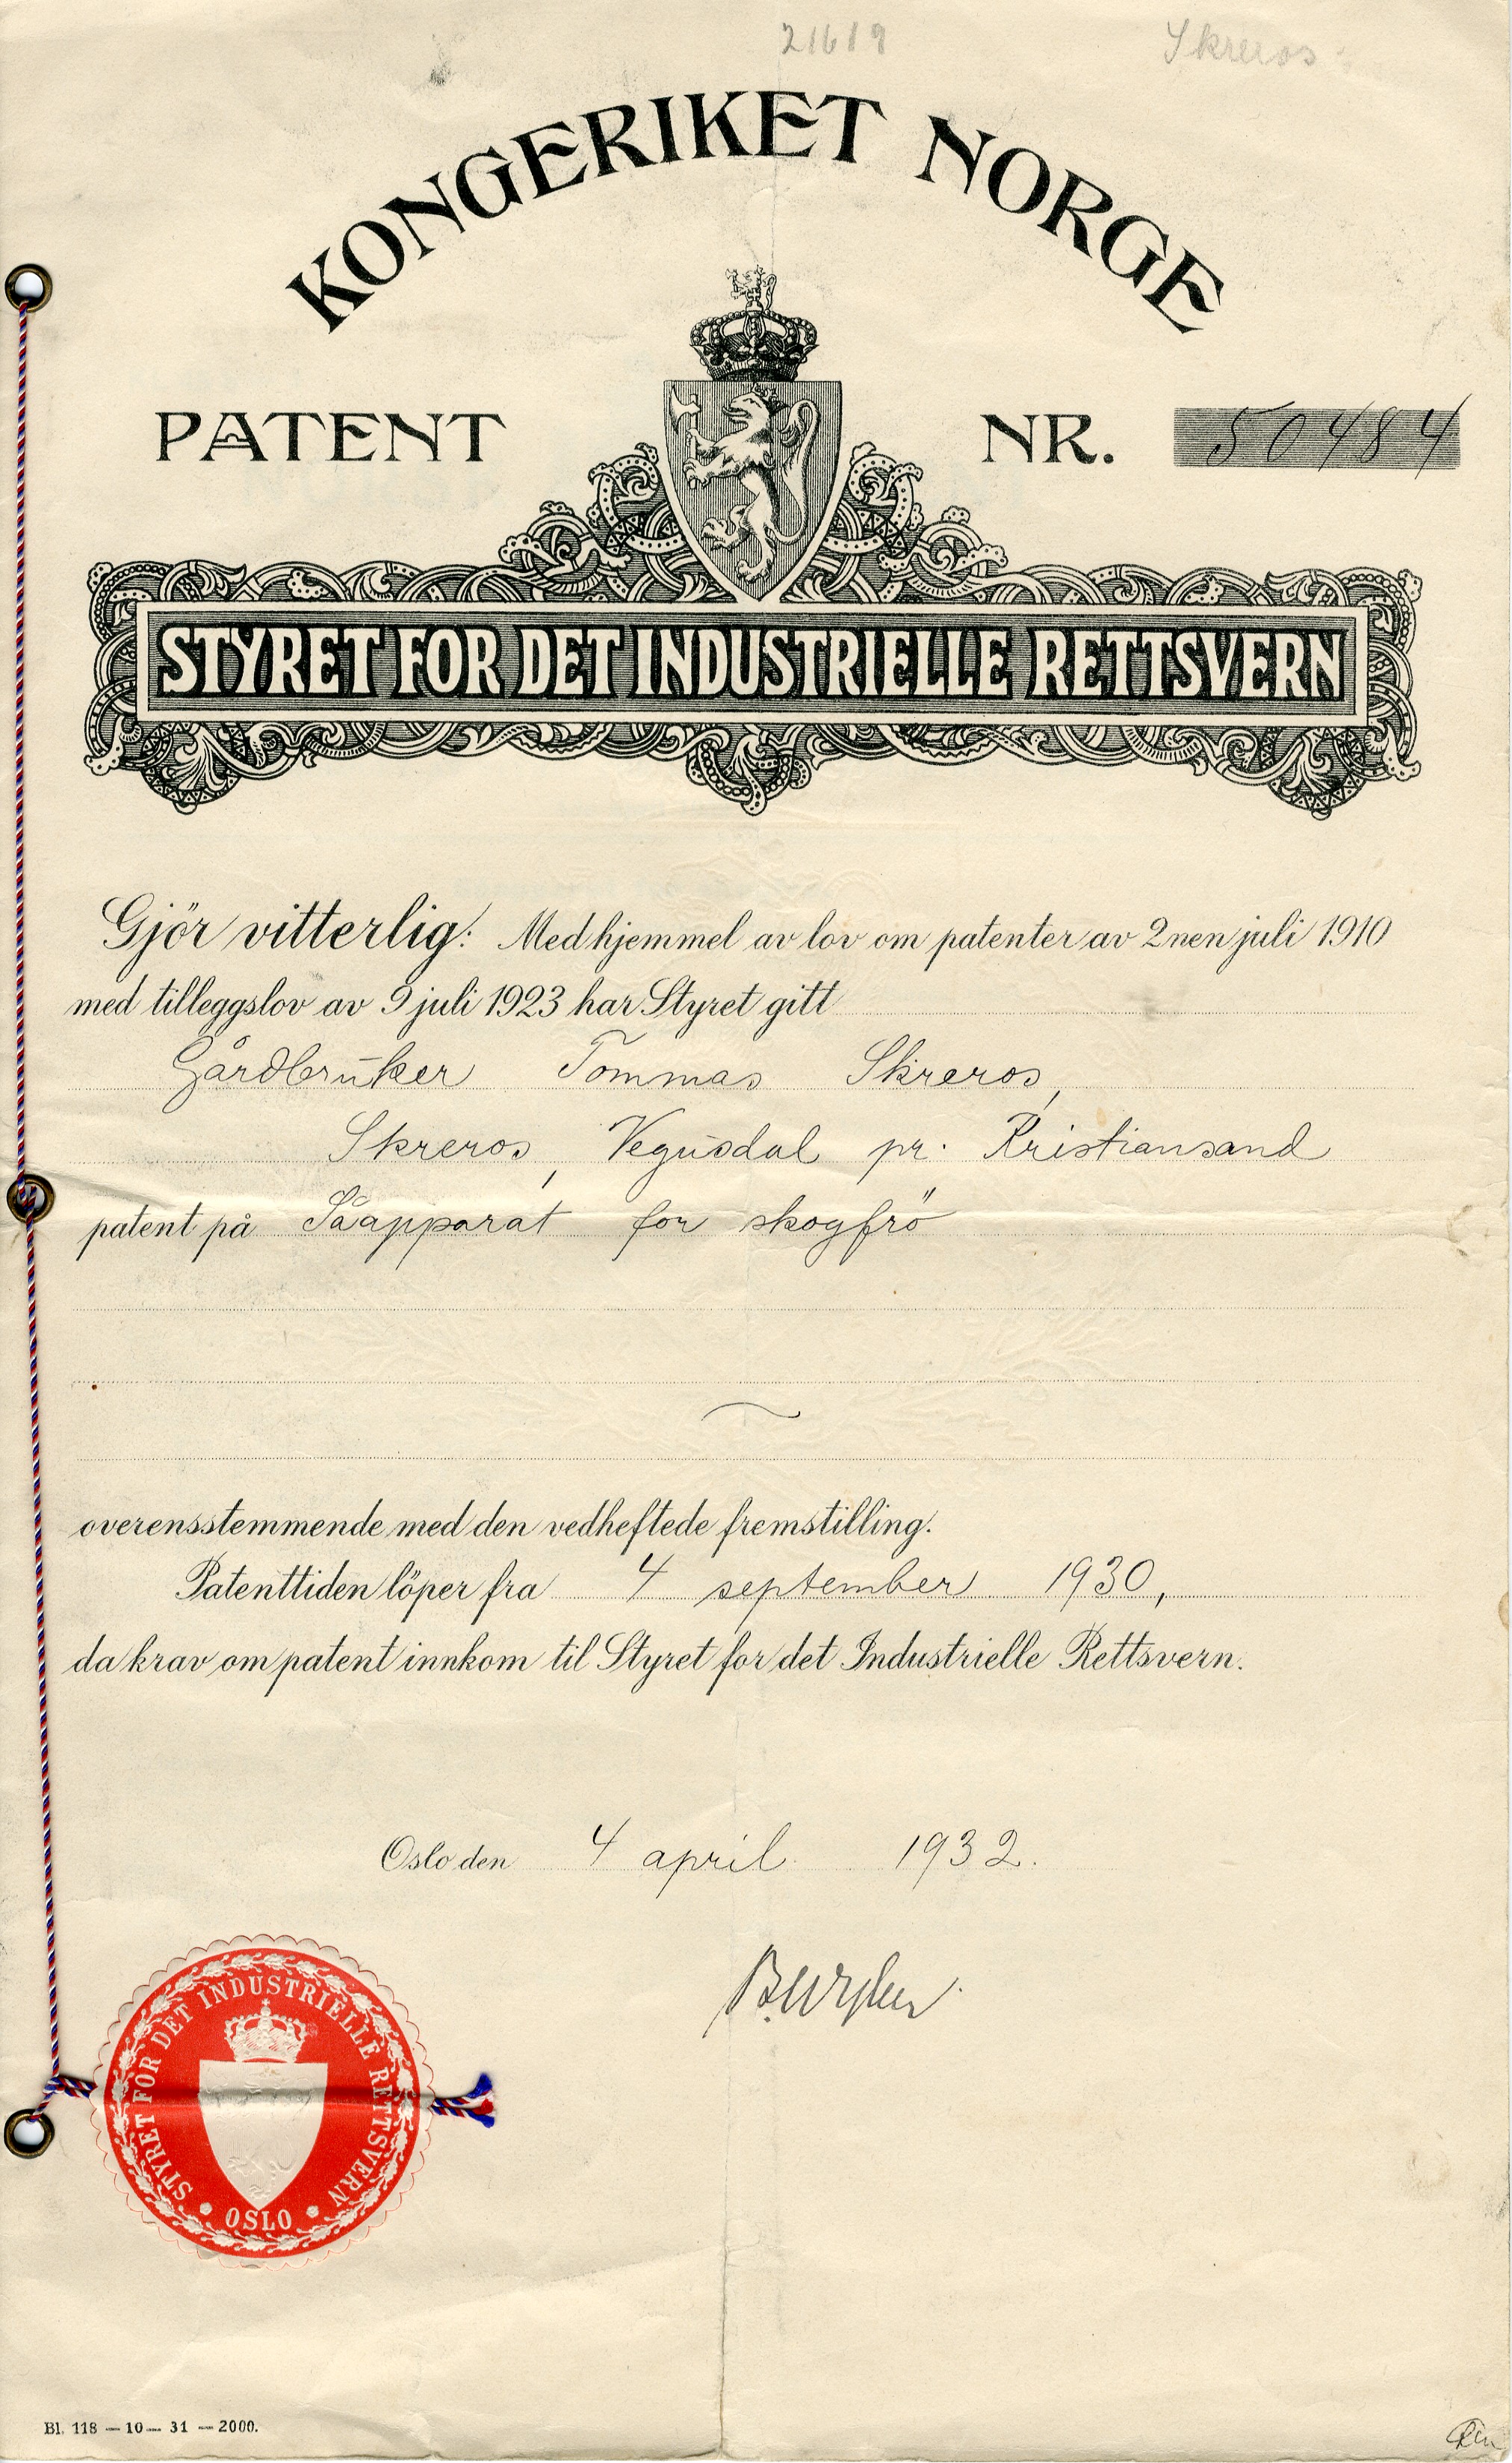 21619 Skreros
KONGERIKET NORGE
PATENT NR. 50484
STYRET FOR DET INDUSTRIELLE RETTSVERN
Gjör vitterlig: Med hjemmel av lov om patenter av 2nen juli 1910
med tilleggslov av 9 juli 1923 har Styret gitt
Gårdbruker Tommas Skreros,
Skreros, Vegusdal pr. Kristiansand
patent på Såapparat for skogfrö
overensstemmende med den vedheftede fremstilling.
Patenttiden löper fra 4 september 1930,
da krav om patent innkom til Styret for det Industrielle Rettsvern.
Oslo den 4 april 1932.
STYRET FOR DET INDUSTRIELLE RETTSVERN
OSLO
Bl. 118 — 10 — 31 — 2000.